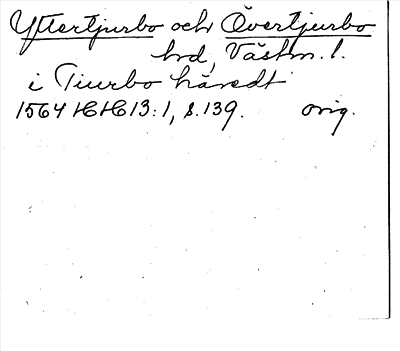 Yttertjurbo och Övertjurbo
hrd, Västm. l.
i Tiurbo häredt
1564 HH 13:1, s. 139. orig.